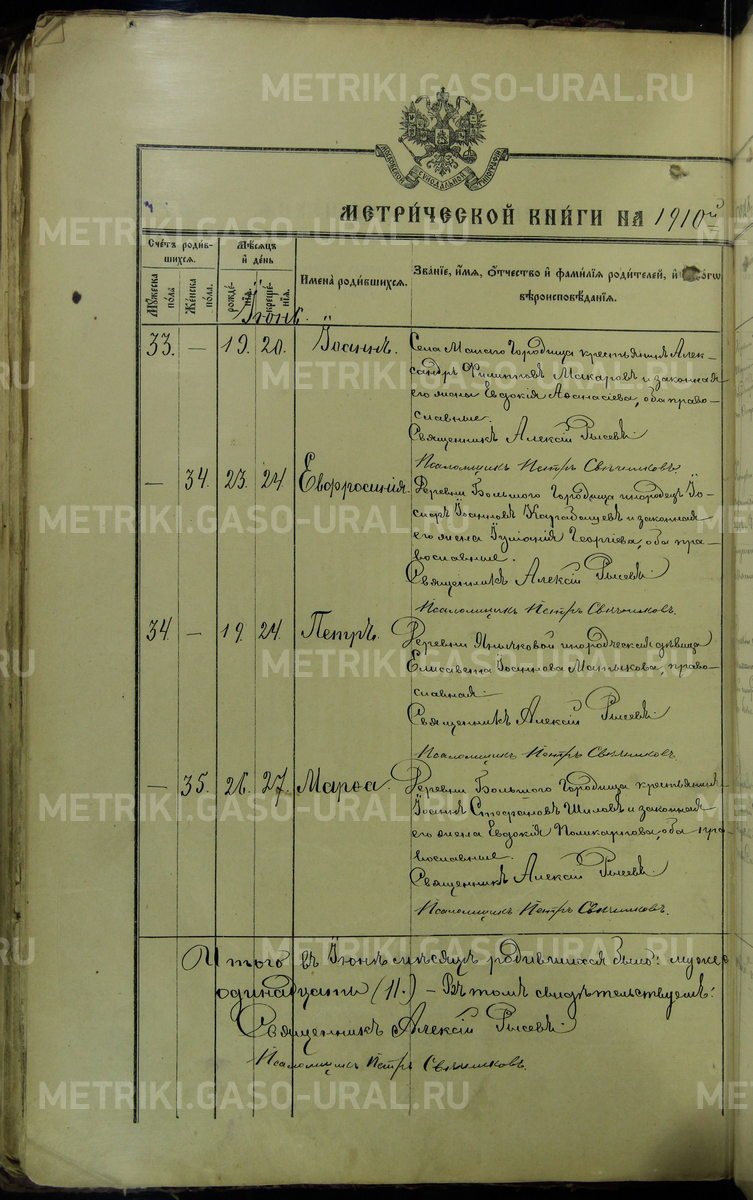 METRIKI.GASO-URAL.RU
МОСКОВСКОЙ СѴНОДАЛЬНОЙ ТИПОГРАФІИ
МЕТРИ́ЧЕСКОЙ КНИ́ГИ НА 1910й
Счетъ роди́вшихсѧ.
Мѹжеска по́ла
Же́нска по́ла.
Мѣ́сѧцъ и де́нь
рожде́нїѧ.
креще́нїѧ.
Имена̀ роди́вшихсѧ.
Зва́нїе, и́мѧ, ѻ́тчество и фами́лїѧ роди́телей, и
вѣроисповѣ́данїѧ.
Іюнь.
33. — 19. 20. Іоаннъ.
Села Малаго Городища крестьянинъ Алек-
сандръ Филипповъ Макаровъ и законная
его жена Евдокія Аѳанасіева, оба право-
славные.
Священникъ Алексій Рысевъ.
Псаломщикъ Петръ Свѣчниковъ.
— 34. 23. 24. Евфросинія.
Деревни Большого Городища инородецъ Іо-
сифъ Іоанновъ и законная
его жена Георгіева, оба пра-
вославные.
Священникъ Алексій Рысевъ.
Псаломщикъ Петръ Свѣчниковъ.
34. — 19. 24. Петръ.
Деревни Янычковой инородческая дѣвица
Елисавета Іоаннова Матыкова, право-
славная.
Священникъ Алексій Рысевъ.
Псаломщикъ Петръ Свѣчниковъ.
— 35. 26. 27. Марѳа.
Деревни Большого Городища крестьянинъ
Іоаннъ Стефановъ Шиловъ и законная
его жена Евдокія Поликарпова, оба пра-
вославные.
Священникъ Алексій Рысевъ.
Псаломщикъ Петръ Свѣчниковъ.
Итого въ Іюнѣ мѣсяцѣ родившихся было: муже
одинадцать (11.) — Въ томъ свидѣтельствуемъ:
Священникъ Алексій Рысевъ.
Псаломщикъ Петръ Свѣчниковъ.